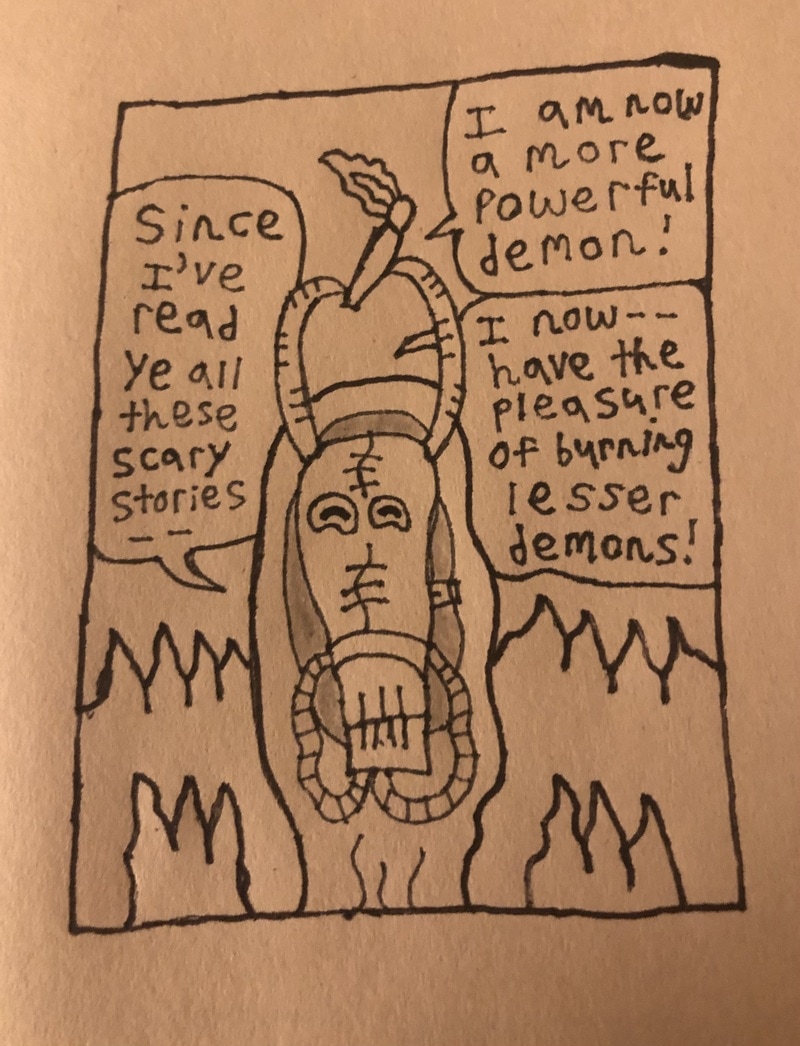 Since
I've
read
ye all
these
scary
stories
--
I am now
a more
powerful
demon!
I now--
have the
pleasure
of burning
lesser
demons!